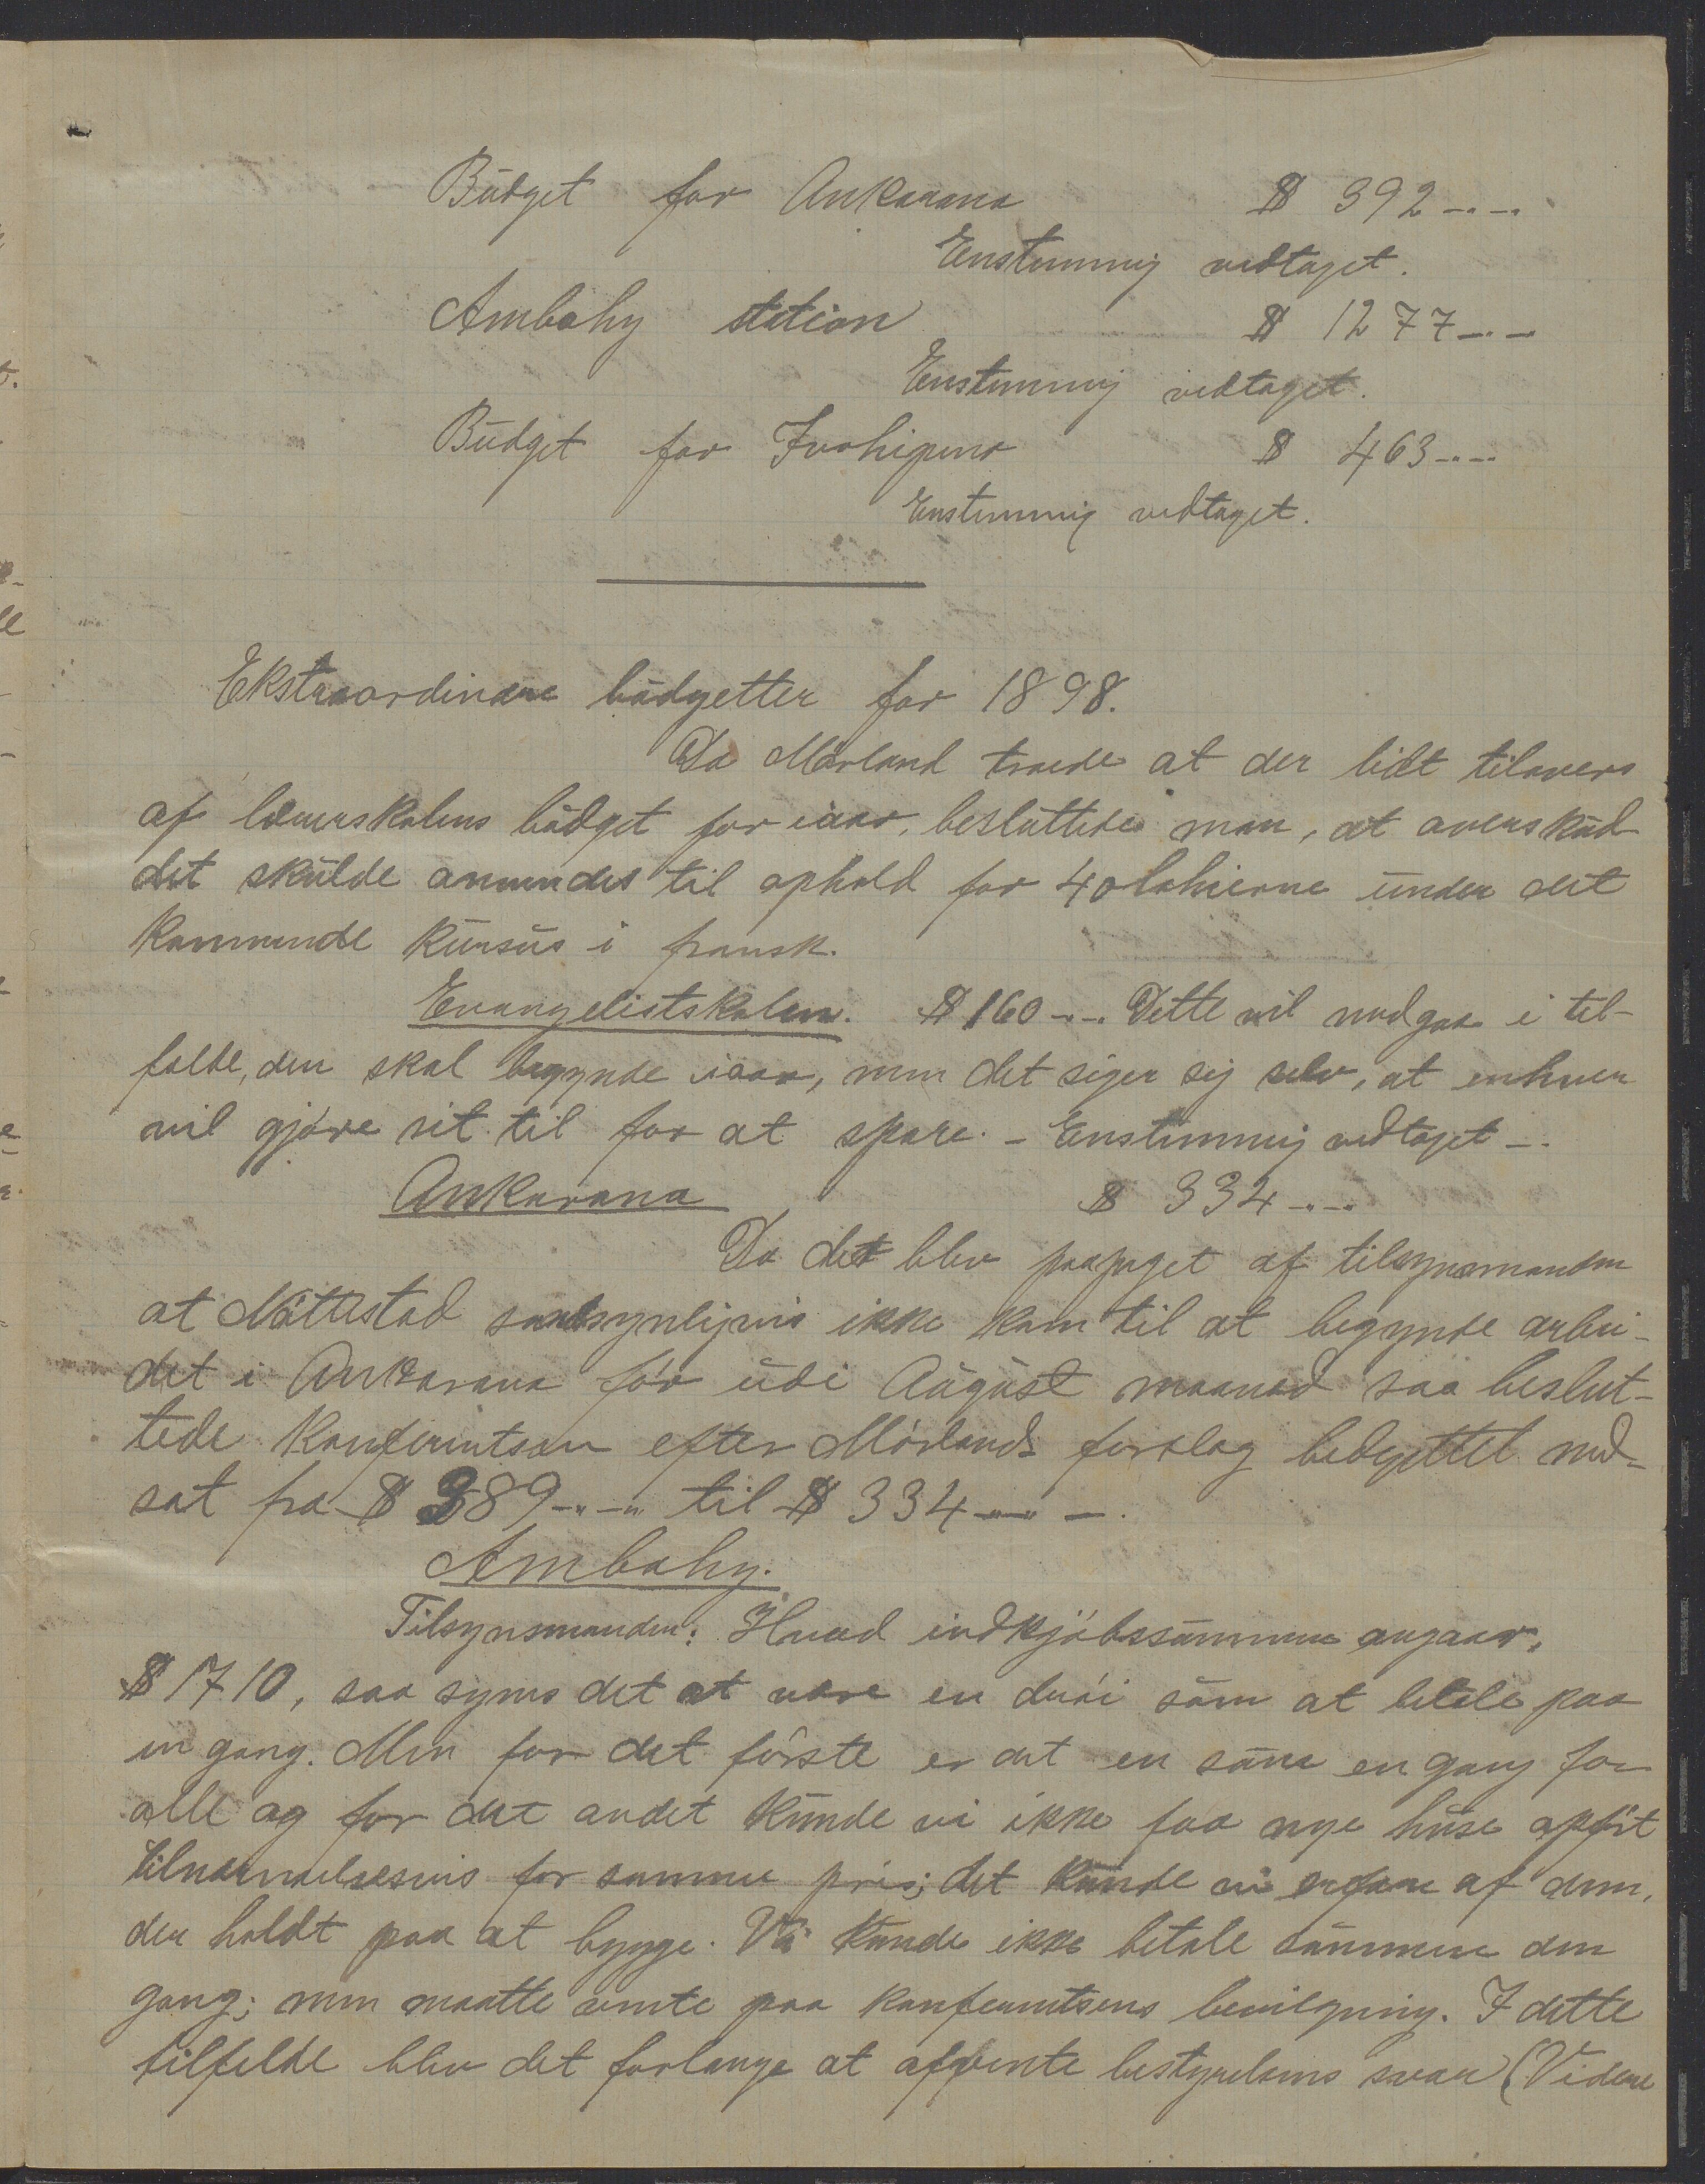 Büdget for Ankarana $ 392 -.-.
Enstemmig vedtaget.
Ambohy station $ 1277 -.-
Enstemmig vedtaget.
Büdget for Ivohipeno $ 463 -.-.
Enstemmig vedtaget.
Ekstraordinære büdgetter for 1898.
Da Mørland troede at der lidt tilovers
af lærerskolens büdget for iaar, beslüttedes man, at overskud-
det skülde anvendes til ophold for 40 lærerne ünder det
kommende kürsüs i fransk.
Evangelistskolen. $ 160 -.-. Dette vil medgaa i til-
fælde, den skal begynde iaar, men det siger sig selv, at enhver
vil gjøre sit til for at spare. - Enstemmig vedtaget -.
Ankarana $ 334 -.-.
Da det blev paapeget af tilsynsmanden
at Nöttestad sandsynligvis ikke kom til at begynde arbei-
det i Ankarana før üdi Aügüst maaned saa beslut-
tede Konferentsen efter Mørlands forslag bedgettet ned-
sat fra $ 389 -.-. til $ 334 -.-.
Ambohy.
Tilsynsmanden: Hvad indkjøbssümmen angaar,
$ 1710, saa synes det at være en drøi süm at betale paa
en gang. Men for det første er det en süm en gang for
alle og for det andet künde vi ikke faa nye hüse opført
tilnærmelsesvis for samme pris; det künde vi erfare af dem,
der holdt paa at bygge. Vi künde ikke betale sümmen den
gang; men maatte vente paa konferentsens bevilgning. I dette
tilfelde blev det forlange at afvente bestyrelsens svar (Videre